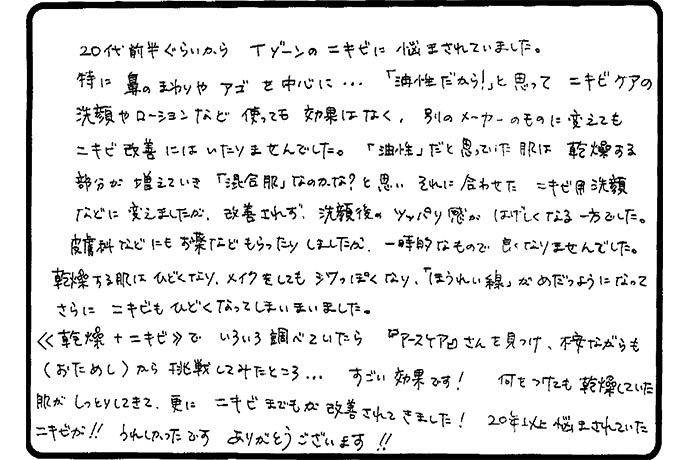 20代前半ぐらいから Tゾーンの ニキビに 悩まされていました。
特に 鼻の まわりや アゴ を 中心に… 「油性だから!」と 思って ニキビケアの
洗顔や ローション など 使っても 効果はなく、別の メーカーの ものに 変えても
ニキビ 改善 には いたりませんでした。 「油性」だと 思っていた 肌は 乾燥する
部分が 増えていき 「混合肌」なのかな?と 思い それに 合わせた ニキビ用 洗顔
などに 変えましたが、改善されず、洗顔後の ツッパリ 感が はげしくなる 一方でした。
皮膚科などにも お薬など もらったり しましたが、一時的なもので 良くなりませんでした。
乾燥する肌は ひどくなり、メイクをしても シワっぽくなり、「ほうれい線」が めだつようになって
さらに ニキビも ひどくなってしまいまいました。
≪乾燥+ニキビ≫で いろいろ 調べていたら 『アースケア』さんを 見つけ、不安ながらも
(おためし)から 挑戦してみたところ… すごい 効果です! 何をつけても 乾燥していた
肌が しっとりしてきて、更に ニキビ までもが 改善されてきました! 20年以上 悩まされていた
ニキビが!! うれしかったです ありがとうございます!!